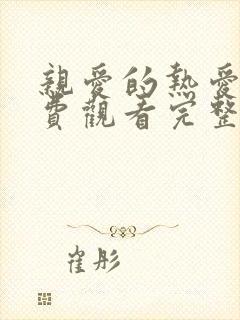 親愛的熱愛
費觀看完整
崔彤